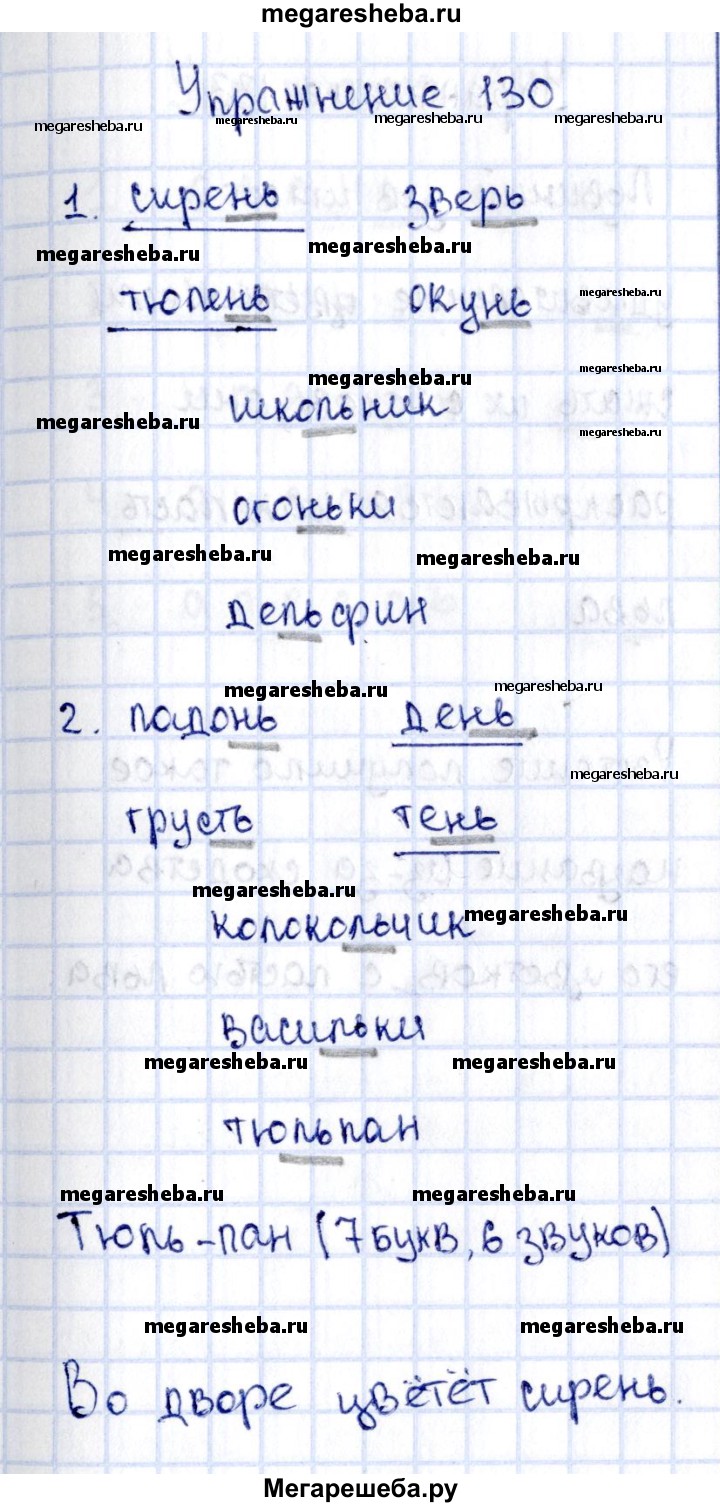 megaresheba.ru
Упражнение 130
megaresheba.ru megaresheba.ru megaresheba.ru megaresheba.ru
1. сирень зверь
megaresheba.ru megaresheba.ru
тюлень окунь
megaresheba.ru
megaresheba.ru megaresheba.ru
школьник
megaresheba.ru megaresheba.ru
огоньки
megaresheba.ru megaresheba.ru
дельфин
megaresheba.ru megaresheba.ru
2. ладонь день
megaresheba.ru
грусть тень
megaresheba.ru
колокольчик megaresheba.ru
васильки
megaresheba.ru megaresheba.ru
тюльпан
megaresheba.ru megaresheba.ru
Тюль-пан (7 букв, 6 звуков)
megaresheba.ru megaresheba.ru
Во дворе цветёт сирень.
Мегарешеба.ру